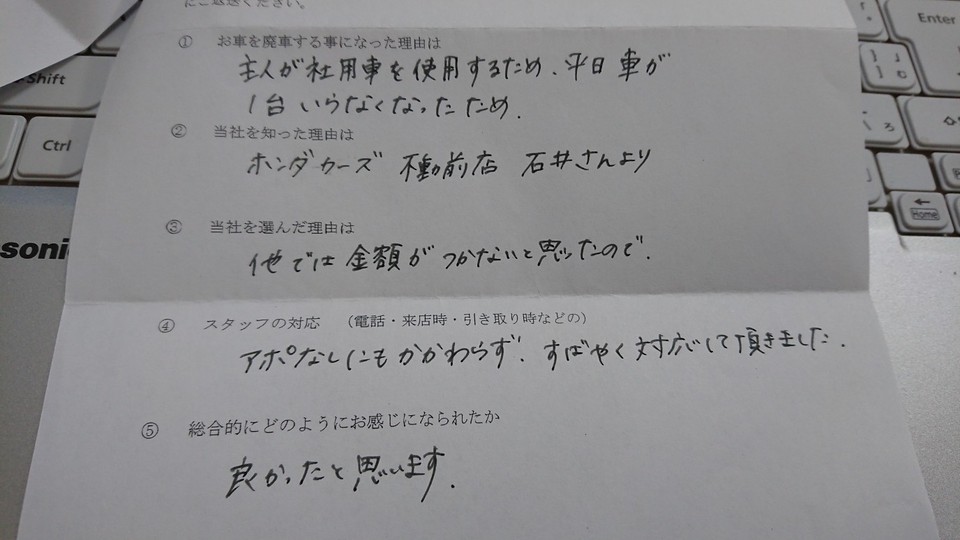 にご返送ください。
① お車を廃車する事になった理由は
主人が社用車を使用するため、平日車が
1台いらなくなったため.
② 当社を知った理由は
ホンダカーズ 不動前店 石井さんより
③ 当社を選んだ理由は
他では金額がつかないと思ったので.
④ スタッフの対応 (電話・来店時・引き取り時などの)
アポなしにもかかわらず、すばやく対応して頂きました.
⑤ 総合的にどのようにお感じになられたか
良かったと思います.
Shift
Ctrl
soni
Enter
Home
ろ
む